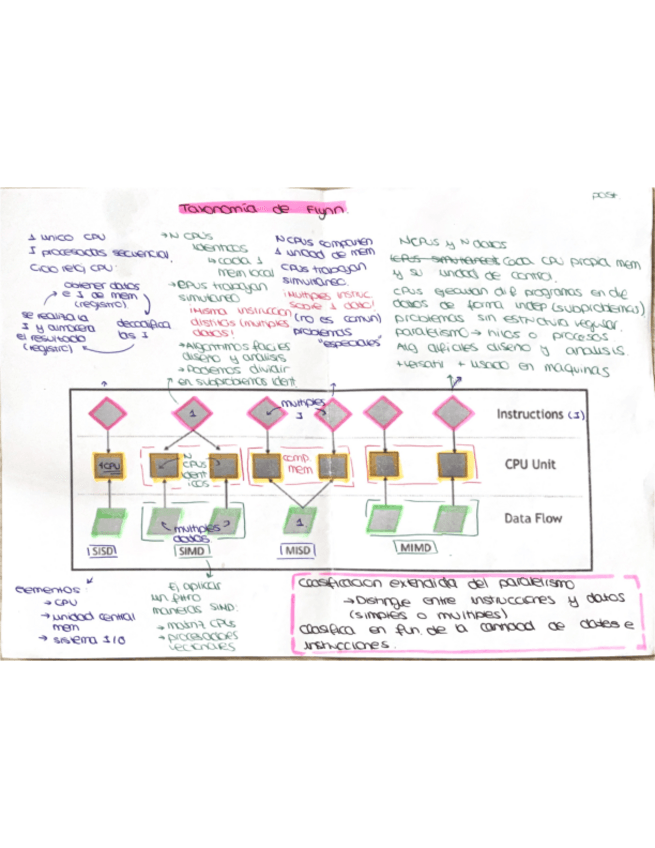 Taxonomía de Flynn.
1 unico CPU
I procesadas secuencial.
Ciclo reloj CPU:
obtener datos
e I de mem
(registro)
decodifica
las I
se realiza la
I y almacena
el resultado
(registro)
→ N CPUs
identicos
↳ cada 1
mem local
→ CPUs trabajan
simultaneo
¡Misma instruccion
distintos (multiples
datos!
→ Algoritmos faciles
diseño y analisis
→ Podemos dividir
en subproblemas ident.
N CPUs comparten
1 unidad de mem
CPUs trabajan
simultaneo.
¡Multiples instruc.
sobre 1 dato!
(no es comun)
problemas
"especiales"
N CPUs y N datos
Cada CPU propia mem
y su unidad de control.
CPUs ejecutan dif programas en dif
datos de forma indep (subproblemas)
problemas sin estructura regular.
paralelismo → hilos o procesos
Alg dificiles diseño y analisis.
+ versatil + usado en maquinas
1
multiples
I
Instructions (I)
1 CPU
N
CPUs
ident
icos
comp.
mem
CPU Unit
multiples
datos
1
Data Flow
SISD
SIMD
MISD
MIMD
elementos:
→ CPU
→ unidad central
mem
→ sistema I/O
Ej aplicar
un filtro
maneras SIMD:
→ matriz CPUs
→ procesadores
vectoriales
Clasificacion extendida del paralelismo
→ Distingue entre instrucciones y datos
(simples o multiples)
Clasifica en fun. de la cantidad de datos e
instrucciones.